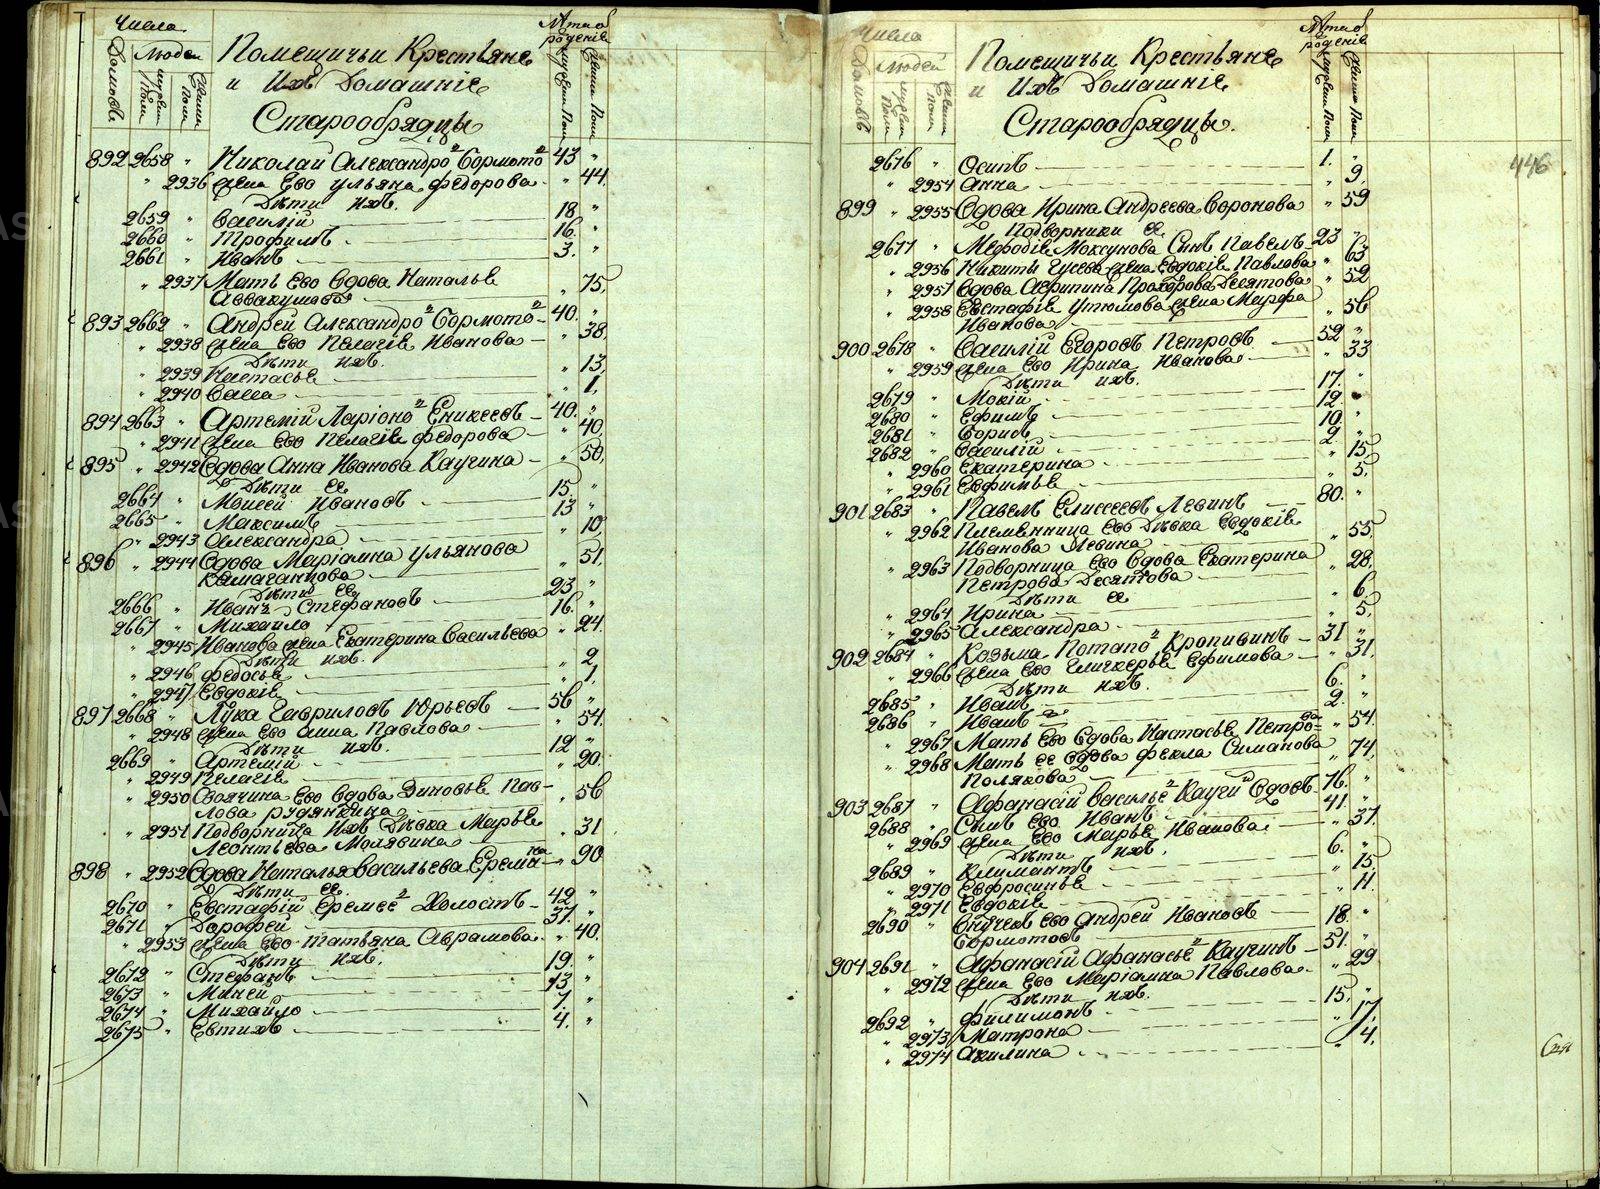 Числа
Домовъ
Людей
мужеска Пола
женска Пола
Помещичьи Крестьяне
и Ихъ Домашніе
Старообрядцы
Лѣта от рожденія
Мужеска Пола
Женска Пола
892 2658 " Николай Александро въ Бормото въ 43 "
" 2936 жена Его Ульяна Федорова " 44.
Дѣти ихъ.
2659 " Василій 18 "
2660 " Трофимъ 16. "
2661 " Иванъ 3. "
" 2937 Мать Его Вдова Наталья
Аввакумова " 75,
893 2662 " Андрей Александро въ Бормото въ 40. "
" 2938 жена Его Пелагѣя Иванова " 38,
Дѣти ихъ.
" 2939 Настасья " 13,
" 2940 Васса " 1,
894 2663 " Артемій Ларіоно въ Еникеевъ 40. "
" 2941 жена Его Пелагѣя Федорова " 40
895 " 2942 Вдова Анна Иванова Каучина " 50,
Дѣти Ея
2664 " Моисей Ивановъ 15. "
2665 " Максимъ 13 "
" 2943 Александра " 10
896 " 2944 Вдова Маріамна Ульянова " 51,
Камаганцова
Дѣти Ея
2666 " Иванъ Стефановъ 23, "
2667 " Михайло 16. "
" 2945 Иванова жена Екатерина Васильева " 24.
Дѣти ихъ.
" 2946 Федосья " 2,
" 2947 Евдокѣя " 1,
897 2668 " Лука Гавриловъ Юрьевъ 56 "
" 2948 жена Его Анна Павлова " 54.
Дѣти ихъ.
2669 " Артемій 12 "
" 2949 Пелагѣя " 20.
" 2950 Своячина Его Вдова Зиновья Пав-
лова Рудянкина " 56
" 2951 Подворница Ихъ Дѣвка Марья
Леонтьева Молявина " 31
898 " 2952 Вдова Наталья Васильева Еремина " 90
Дѣти Ея.
2670 " Евстафій Еремее въ Холостъ 42 "
2671 " Дорофей 37. "
" 2953 жена Его Татьяна Аврамова " 40.
Дѣти ихъ.
2672 " Стефанъ 19. "
2673 " Миней 13 "
2674 " Михайло 7. "
2675 " Евтихъ 4. "
Числа
Домовъ
Людей
мужеска Пола
женска Пола
Помещичьи Крестьяне
и Ихъ Домашніе
Старообрядцы.
Лѣта от рожденія
Мужеска Пола
Женска Пола
446
2676 " Осипъ 1. "
" 2954 Анна " 9,
899 " 2955 Вдова Ирина Андреева Воронова " 59
Подворники Ея
2677 " Мефодія Моксунова Сынъ Павелъ 23 "
" 2956 Никиты Гусева жена Евдокѣя Павлова " 63
" 2957 Вдова Агрипина Прохорова Десятова " 52
" 2958 Евстафія Утюмова жена Марфа
Иванова " 56
900 2678 " Василій Егоровъ Петровъ 52 "
" 2959 жена Его Ирина Иванова " 33
Дѣти ихъ.
2679 " Мокій 17. "
2680 " Ефимъ 12. "
2681 " Борисъ 10. "
2682 " Василій 2. "
" 2960 Екатерина " 15,
" 2961 Евфимья " 5,
901 2683 " Павелъ Елисеевъ Левинъ 80. "
" 2962 Племянница Его Дѣвка Евдокѣя
Иванова Левина " 55,
" 2963 Подворница Его Вдова Екатерина
Петрова Десятова " 28,
Дѣти Ея
" 2964 Ирина " 6,
" 2965 Александра " 5,
902 2684 " Козьма Потапо въ Кропивинъ 31 "
" 2966 жена Его Гликерья Ефимова " 31.
Дѣти ихъ.
2685 " Иванъ 6. "
2686 " Иванъ 2й 2. "
" 2967 Мать Его Вдова Настасья Петрова " 54.
" 2968 Мать Ея Вдова Фекла Симанова
Полякова " 74,
903 2687 " Афанасій Василье въ Кауги нъ Вдовъ 76. "
2688 " Сынъ Его Иванъ 41. "
" 2969 жена Его Марья Иванова " 37.
Дѣти ихъ.
2689 " Климантъ 6. "
" 2970 Евфросинья " 15
" 2971 Евдокѣя " 11.
2690 " Внучекъ Его Андрей Ивановъ
Бормотовъ 18. "
904 2691 " Афанасій Афанасье въ Каучинъ 51. "
" 2972 жена Его Маріамна Павлова " 29
Дѣти ихъ.
2692 " Филимонъ 15, "
" 2973 Матрона " 17,
" 2974 Акилина " 4,